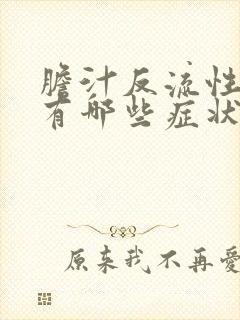 膽汁反流性
有哪些症狀
原来我不再愛